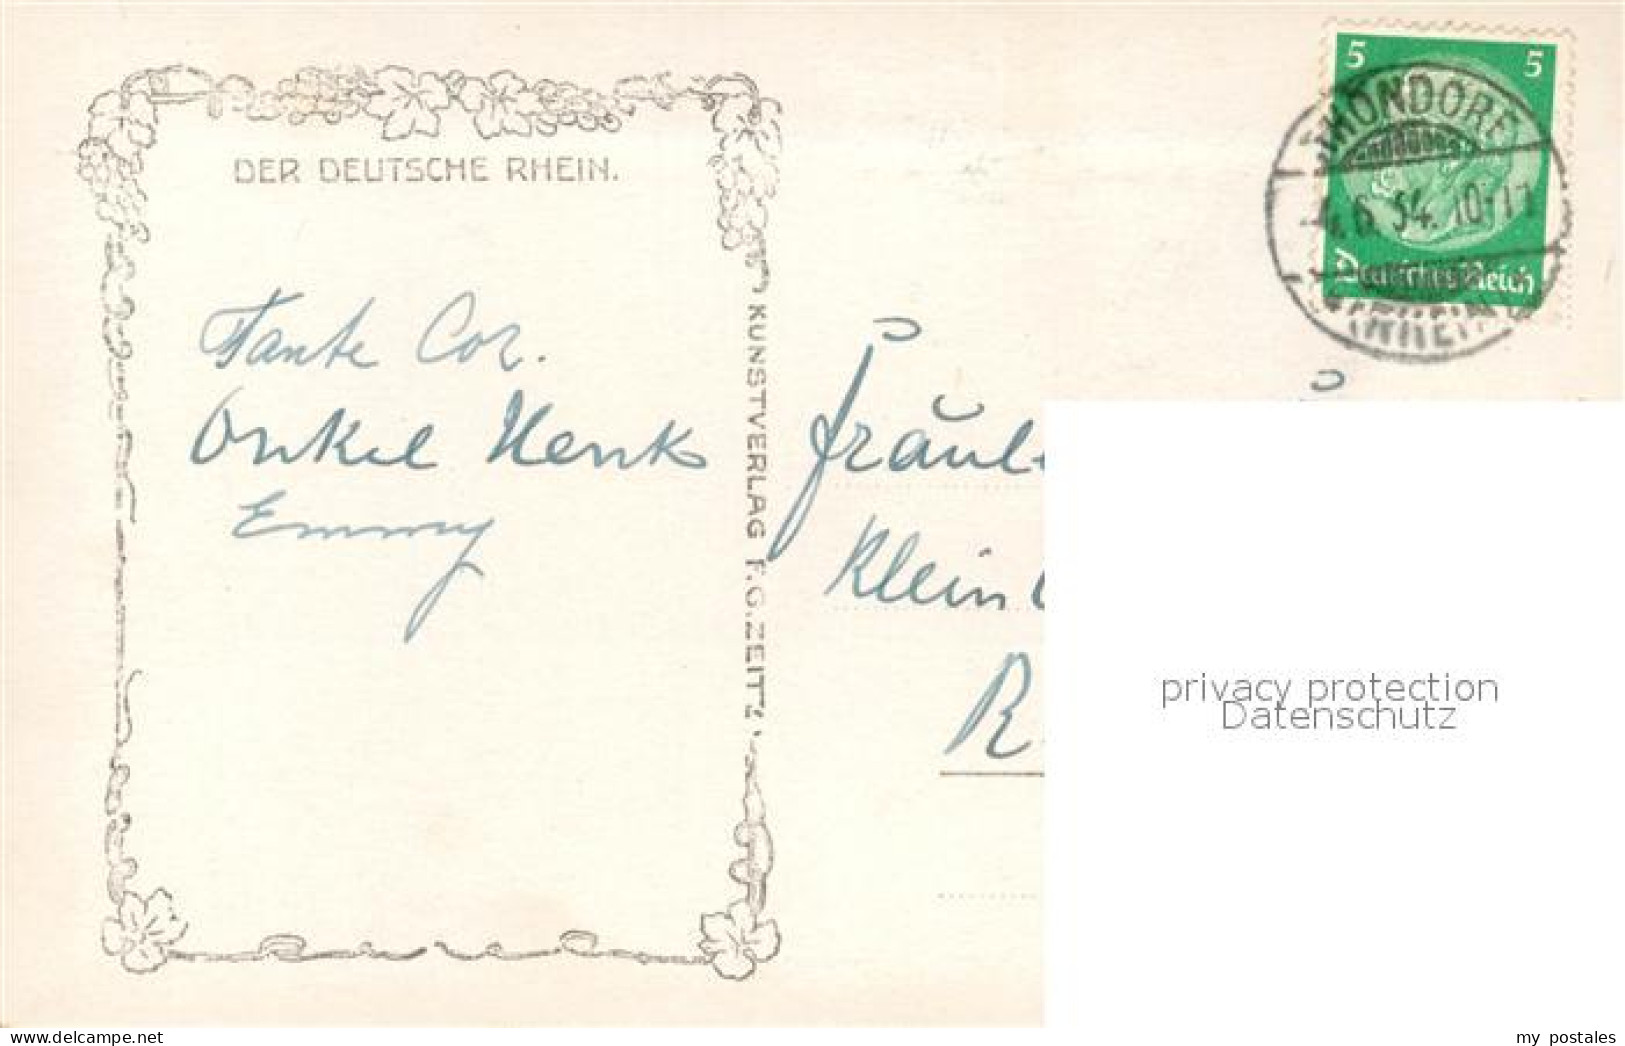 DER DEUTSCHE RHEIN.
Tante Cor.
Onkel Henk
Emmy
KUNSTVERLAG F.G.ZEITZ.
5 5
MONDORF
6. 34. 10-11
Deutsches Reich
Fräul
Klein
R
privacy protection
Datenschutz
© www.delcampe.net
my postales